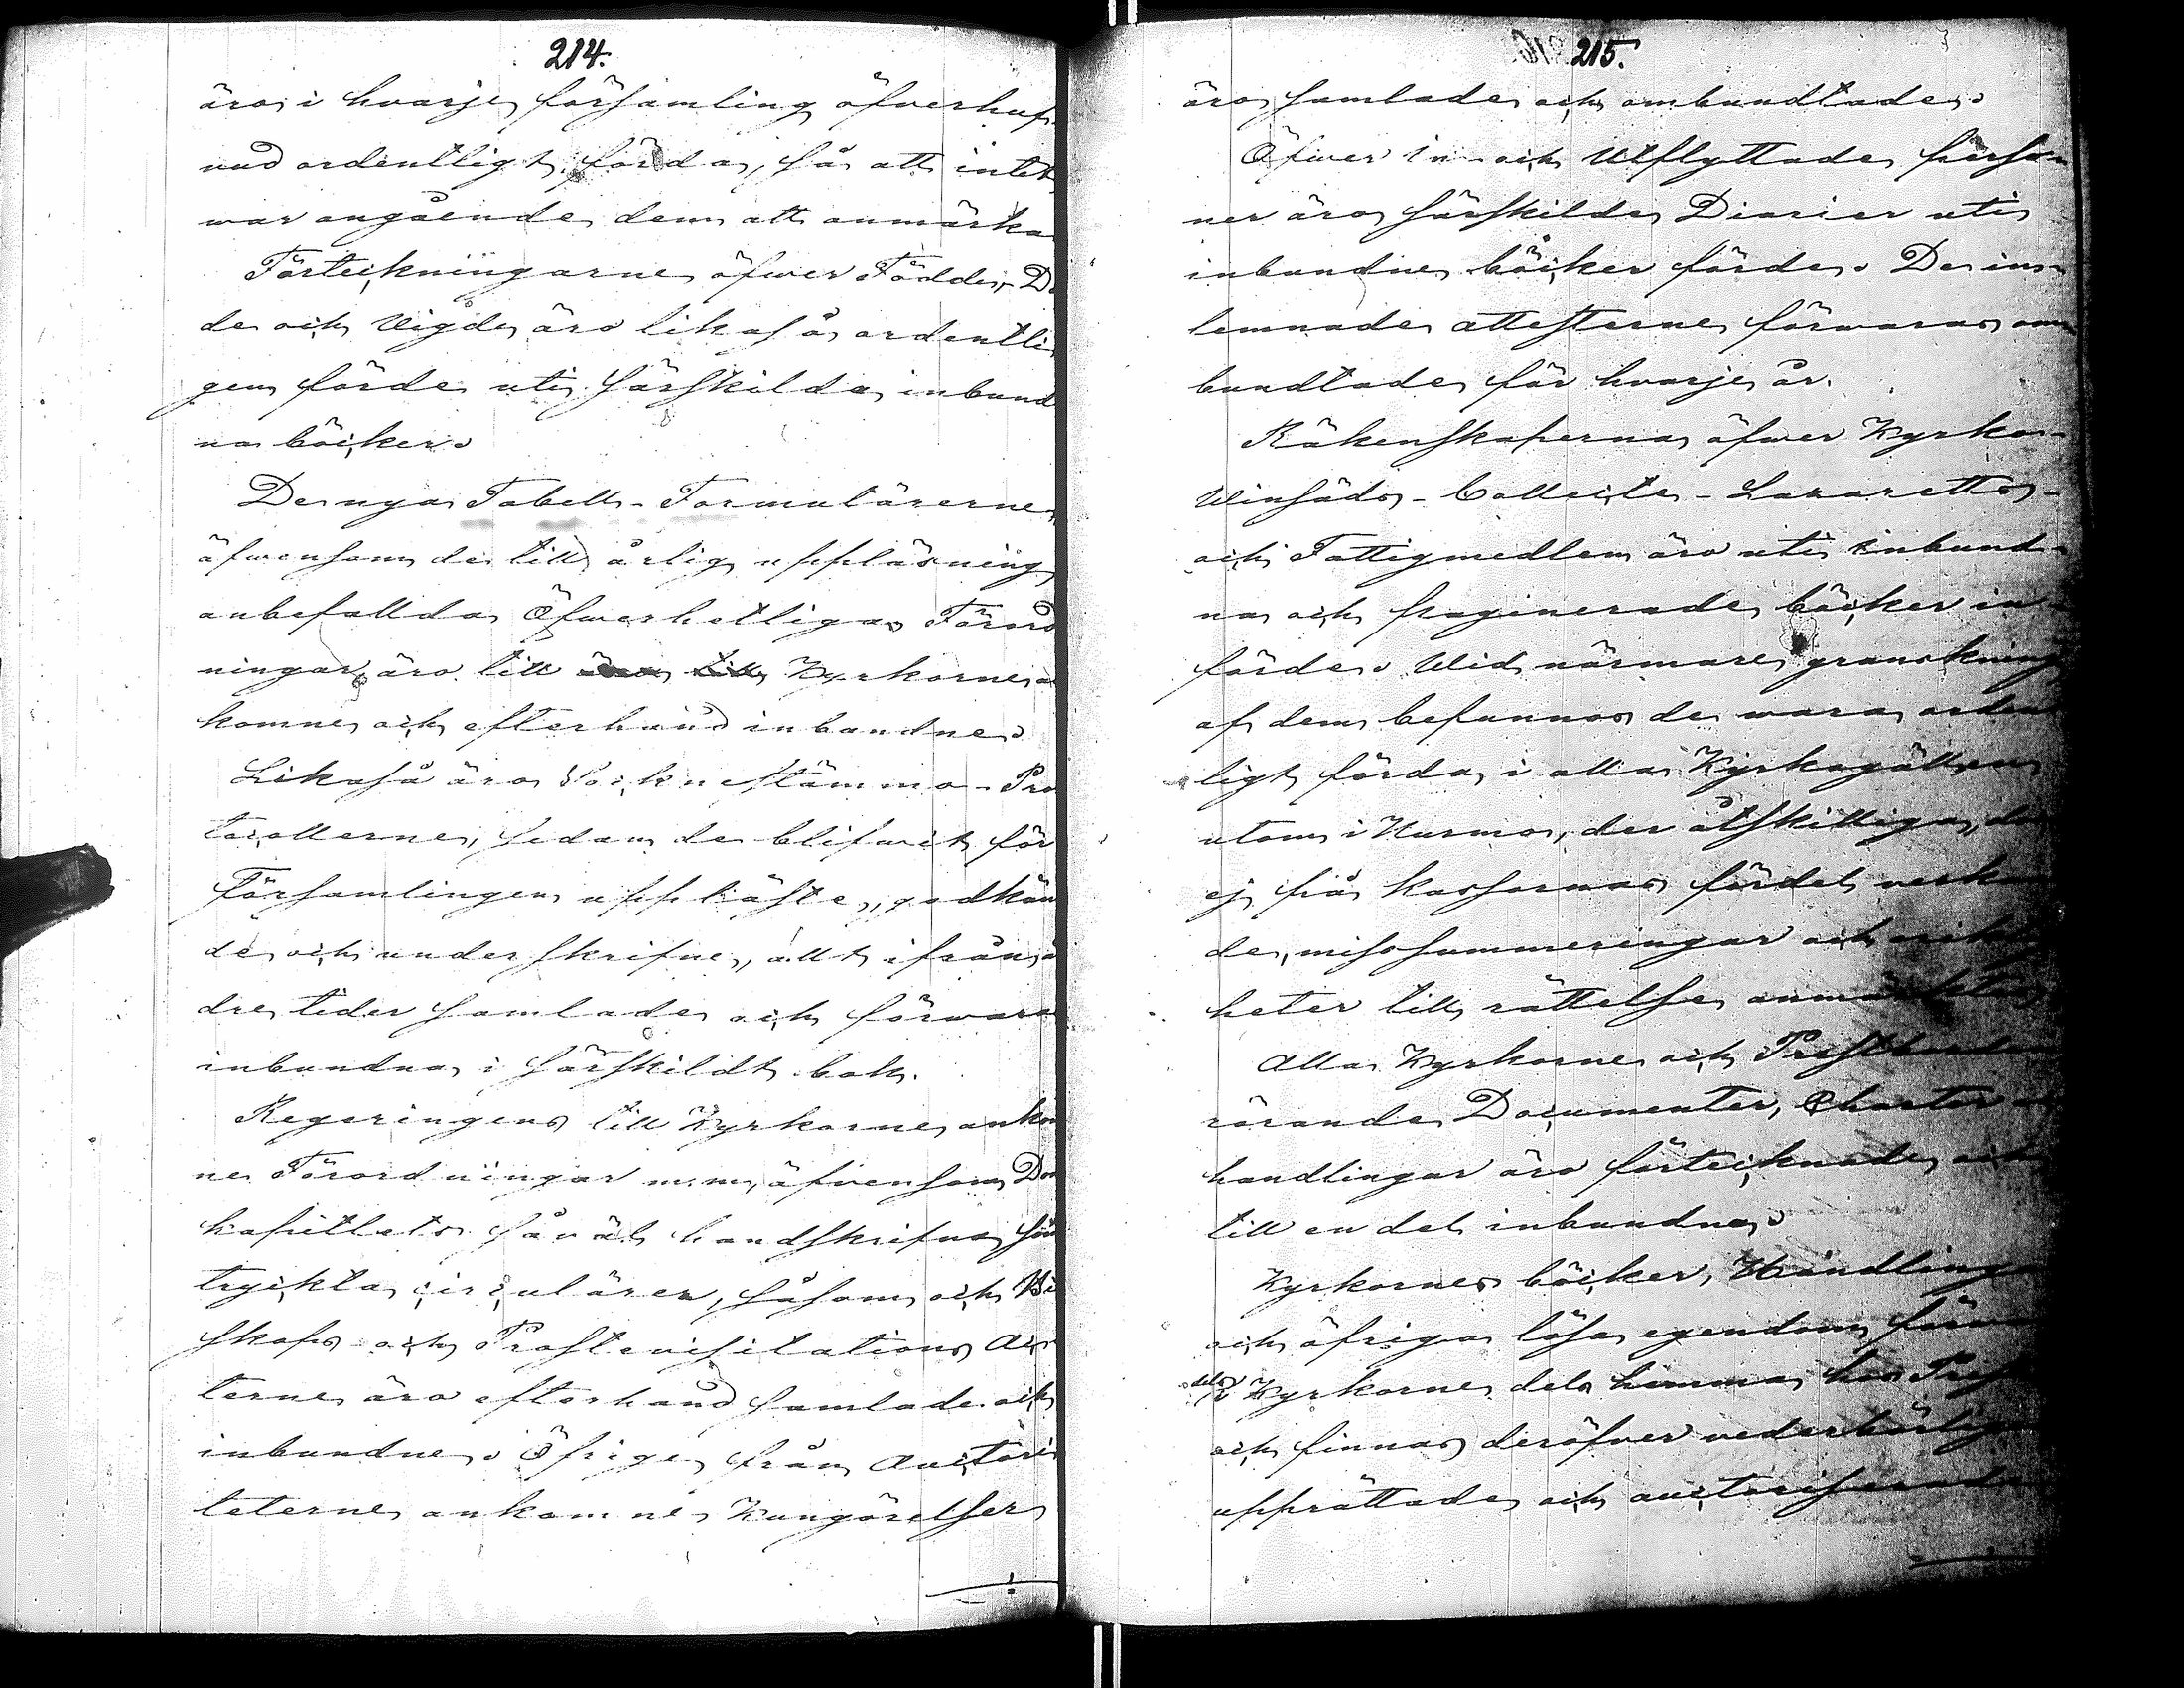 214.
äro i hvarje församling öfverhuf-
vud ordentligt förda, så att intet
war angående dem att anmärka
Förteckningarne öfwer Födde, Dö
de och Vigde äro likaså ordentli
gen förde uti särskilda inbund
na böcker.
De nya Tabell-Formulärerne,
äfwensom de till årlig uppläsning
anbefallda Öfwerhetliga Förord
ningar äro till Kyrkorne
komne och efterhand inbundne.
Likaså äro Sockne stämmo-Pro
tocollerne, sedan de blifwit för
Församlingen uppläste, godkän
de och underskrifne, allt ifrån
dre tider samlade och förwara
inbundna i särskildt band.
Regeringens till Kyrkorne ankom
ne Förordningar m.m, äfvensom Dom
kapitlets såväl handskrifna som
tryckta circulärer, såsom och Bi
skops- och Prostevisitations Ac
terne äro efterhand samlade och
inbundne. Öfrige från Auctori
teterne ankomne Kungörelser
215.
äro samlade och ombundtade.
Öfwer In- och Utflyttade perso-
ner äro särskilde Diarier uti
inbundne böcker förde. De in-
lemnade attesterne förwaras om
bundtade för hvarje år.
Räkenskaperna öfwer Kyrko-
Vinsäds- Collecte- Lazaretts-
och Fattigmedlem äro uti inbund-
na och paginerade böcker in-
förde. Vid närmare granskning
af dem befunnos de wara orden
ligt förda i alla Kyrkogällen
utom i Nurmo, der åtskilliga, de
ej på kassornas fördel verkan
de, missummeringar och
heter till rättelse anmärktes
Alla Kyrkorne och Prestbord
rörande Documenter, Chartor
handlingar äro förtecknade och
till en del inbundna.
Kyrkornes böcker, Handlinga
och öfriga lösa egendom förva
dels
i Kyrkorne dels hemma hos Prest
och finnas deröfver vederbörlige
upprättade och auctoriserade